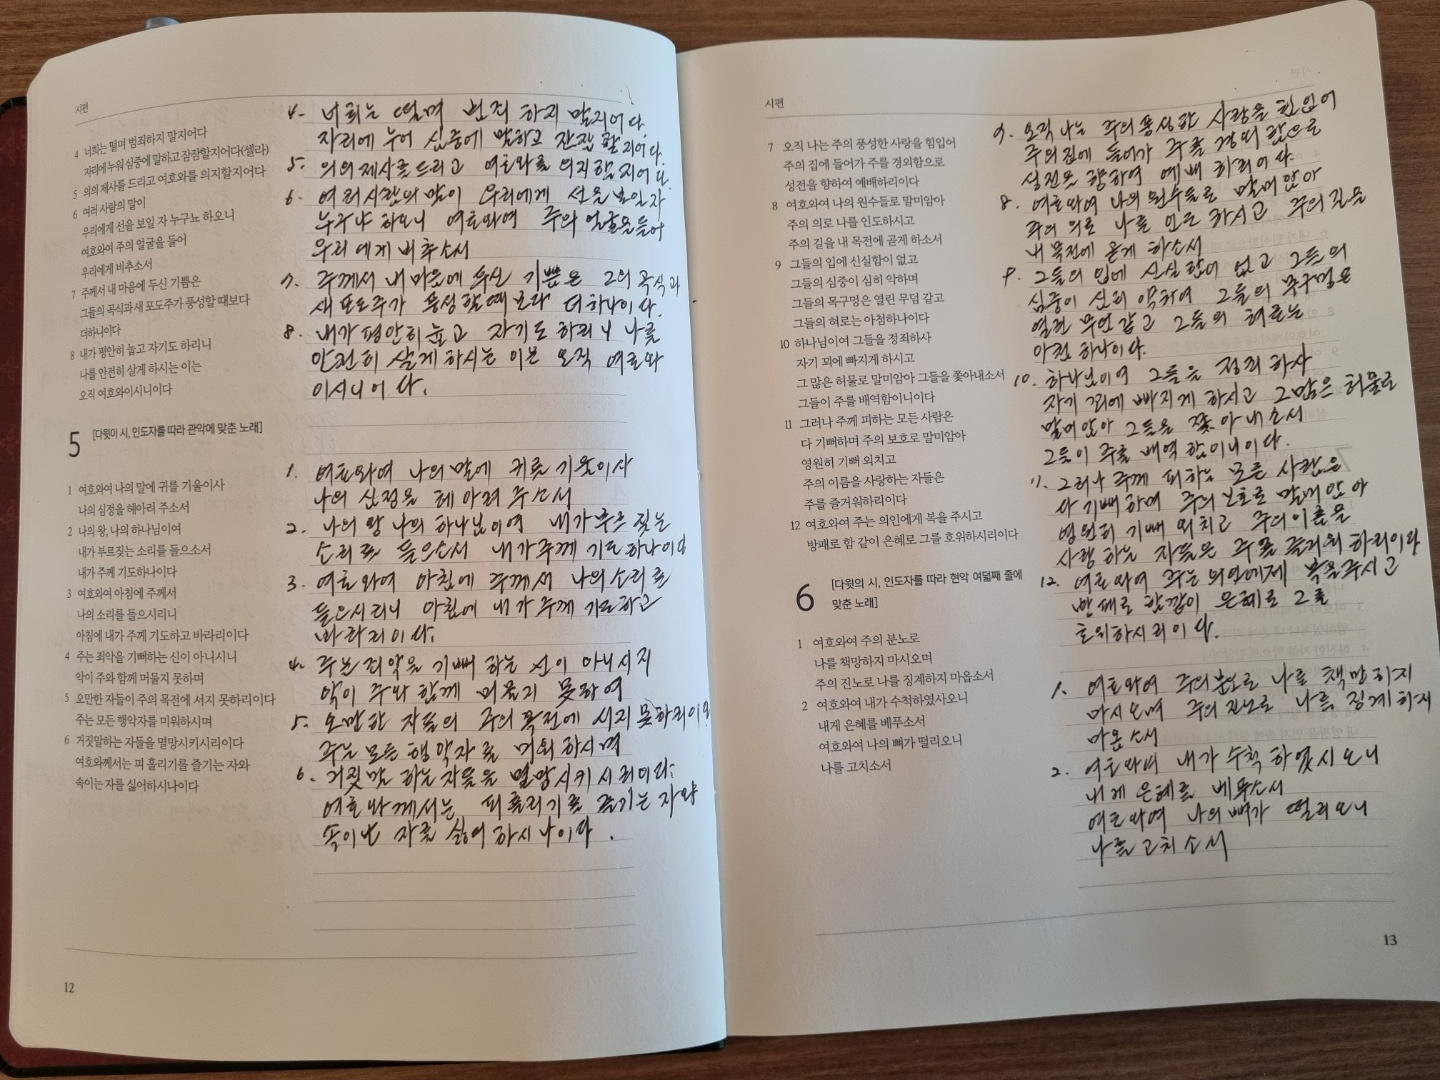 시편
4 너희는 떨며 범죄하지 말지어다
자리에 누워 심중에 말하고 잠잠할지어다(셀라)
5 의의 제사를 드리고 여호와를 의지할지어다
6 여러 사람의 말이
우리에게 선을 보일 자 누구뇨 하오니
여호와여 주의 얼굴을 들어
우리에게 비추소서
7 주께서 내 마음에 두신 기쁨은
그들의 곡식과 새 포도주가 풍성할 때보다
더하니이다
8 내가 평안히 눕고 자기도 하리니
나를 안전히 살게 하시는 이는
오직 여호와이시니이다
5 [다윗의 시, 인도자를 따라 관악에 맞춘 노래]
1 여호와여 나의 말에 귀를 기울이사
나의 심정을 헤아려 주소서
2 나의 왕, 나의 하나님이여
내가 부르짖는 소리를 들으소서
내가 주께 기도하나이다
3 여호와여 아침에 주께서
나의 소리를 들으시리니
아침에 내가 주께 기도하고 바라리이다
4 주는 죄악을 기뻐하는 신이 아니시니
악이 주와 함께 머물지 못하며
5 오만한 자들이 주의 목전에 서지 못하리이다
주는 모든 행악자를 미워하시며
6 거짓말하는 자들을 멸망시키시리이다
여호와께서는 피 흘리기를 즐기는 자와
속이는 자를 싫어하시나이다
4. 너희는 떨며 범죄 하지 말지어다.
자리에 누어 심중에 말하고 잔잠 할지어다.
5. 의의 제사를 드리고 여호와를 의지할지어다.
6. 여러사람의 말이 우리에게 선을 보일자
누구냐 하오니 여호와여 주의 얼굴을 들어
우리에게 비추소서
7. 주께서 내 마음에 두신 기쁨은 그의 곡식과
새 포도주가 풍성할때 보다 더하니이다.
8. 내가 평안히 눕고 자기도 하리니 나를
안전히 살게 하시는 이는 오직 여호와
이시니이다.
1. 여호와여 나의 말에 귀를 기울이사
나의 심정을 헤아려 주소서
2. 나의 왕 나의 하나님이여 내가 부르 짖는
소리를 들으소서 내가 주께 기도 하나이다
3. 여호와여 아침에 주께서 나의 소리를
들으시리니 아침에 내가 주께 기도하고
바라리이다.
4. 주는 죄악을 기뻐 하는 신이 아니시니
악이 주와 함께 머물지 못하여
5. 오만한 자들의 주의 목전에 서지 못하리이다
주는 모든 행악자를 미워하시며
6. 거짓말 하는 자들을 멸망시키시리이다.
여호와께서는 피흘리기를 즐기는 자와
속이난 자를 싫어 하시나이다.
12
시편
7 오직 나는 주의 풍성한 사랑을 힘입어
주의 집에 들어가 주를 경외함으로
성전을 향하여 예배하리이다
8 여호와여 나의 원수들로 말미암아
주의 의로 나를 인도하시고
주의 길을 내 목전에 곧게 하소서
9 그들의 입에 신실함이 없고
그들의 심중이 심히 악하며
그들의 목구멍은 열린 무덤 같고
그들의 혀로는 아첨하나이다
10 하나님이여 그들을 정죄하사
자기 꾀에 빠지게 하시고
그 많은 허물로 말미암아 그들을 쫓아내소서
그들이 주를 배역함이니이다
11 그러나 주께 피하는 모든 사람은
다 기뻐하며 주의 보호로 말미암아
영원히 기뻐 외치고
주의 이름을 사랑하는 자들은
주를 즐거워하리이다
12 여호와여 주는 의인에게 복을 주시고
방패로 함 같이 은혜로 그를 호위하시리이다
6 [다윗의 시, 인도자를 따라 현악 여덟째 줄에
맞춘 노래]
1 여호와여 주의 분노로
나를 책망하지 마시오며
주의 진노로 나를 징계하지 마옵소서
2 여호와여 내가 수척하였사오니
내게 은혜를 베푸소서
여호와여 나의 뼈가 떨리오니
나를 고치소서
7. 오직 나는 주의 풍성한 사랑을 힘입어
주의 집에 들어가 주를 경외 함으로
성전을 향하여 예배 하리이다.
8. 여호와여 나의 원수들로 말미암아
주의 의로 나를 인도 하시고 주의 길을
내 목전에 곧게 하소서
9. 그들의 입에 신실함이 없고 그들의
심중이 심히 악하여 그들의 목구멍은
열린 무덤 같고 그들의 혀로는
아첨 하나이다.
10. 하나님이여 그들을 정죄 하사
자기 꾀에 빠지게 하시고 그많은 허물로
말미암아 그들을 쫓아내소서
그들이 주를 배역 함이니이다.
11. 그러나 주께 피하는 모든 사람은
다 기뻐하며 주의 보호로 말미암아
영원히 기뻐 외치고 주의 이름을
사랑 하는 자들은 주를 즐거워 하리이다
12. 여호와여 주는 의인에게 복을 주시고
방패로 함같이 은혜로 그를
호위하시리이다.
1. 여호와여 주의 분노로 나를 책망하지
마시오며 주의 진노로 나를 징계하지
마옵소서
2. 여호와여 내가 수척 하였사오니
내게 은혜를 베푸소서
여호와여 나의 뼈가 떨리오니
나를 고치소서
13